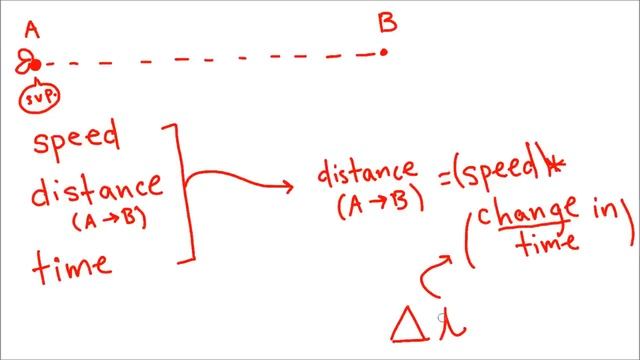 A
B
sup.
speed
distance
(A→B)
time
distance =(speed)*
(A→B)
(change in
time)
Δ